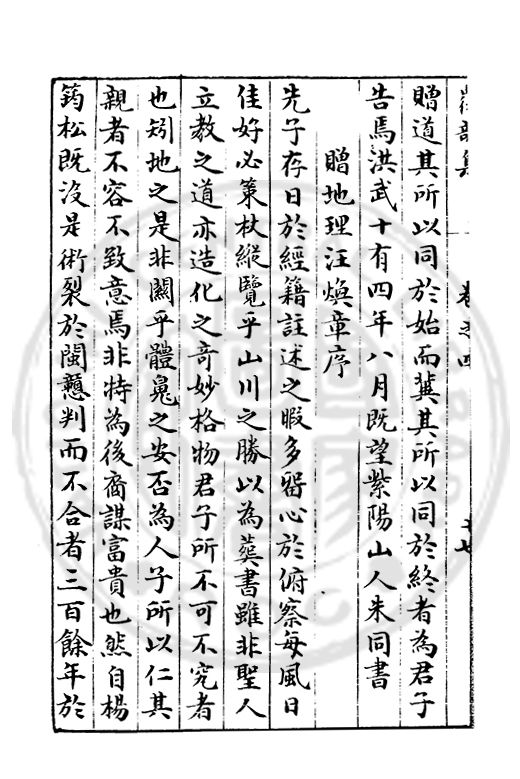 卷之四
贈道其所以同於始而冀其所以同於終者為君子
告焉洪武十有四年八月既望紫陽山人朱同書
贈地理汪煥章序
先子存日於經籍註述之暇多留心於俯察每風日
佳好必策杖縱覽乎山川之勝以為葬書雖非聖人
立教之道亦造化之奇妙格物君子所不可不究者
也矧地之是非關乎體魄之安否為人子所以仁其
親者不容不致意焉非特為後裔謀富貴也然自楊
筠松既沒是術裂於閩贛判而不合者三百餘年於